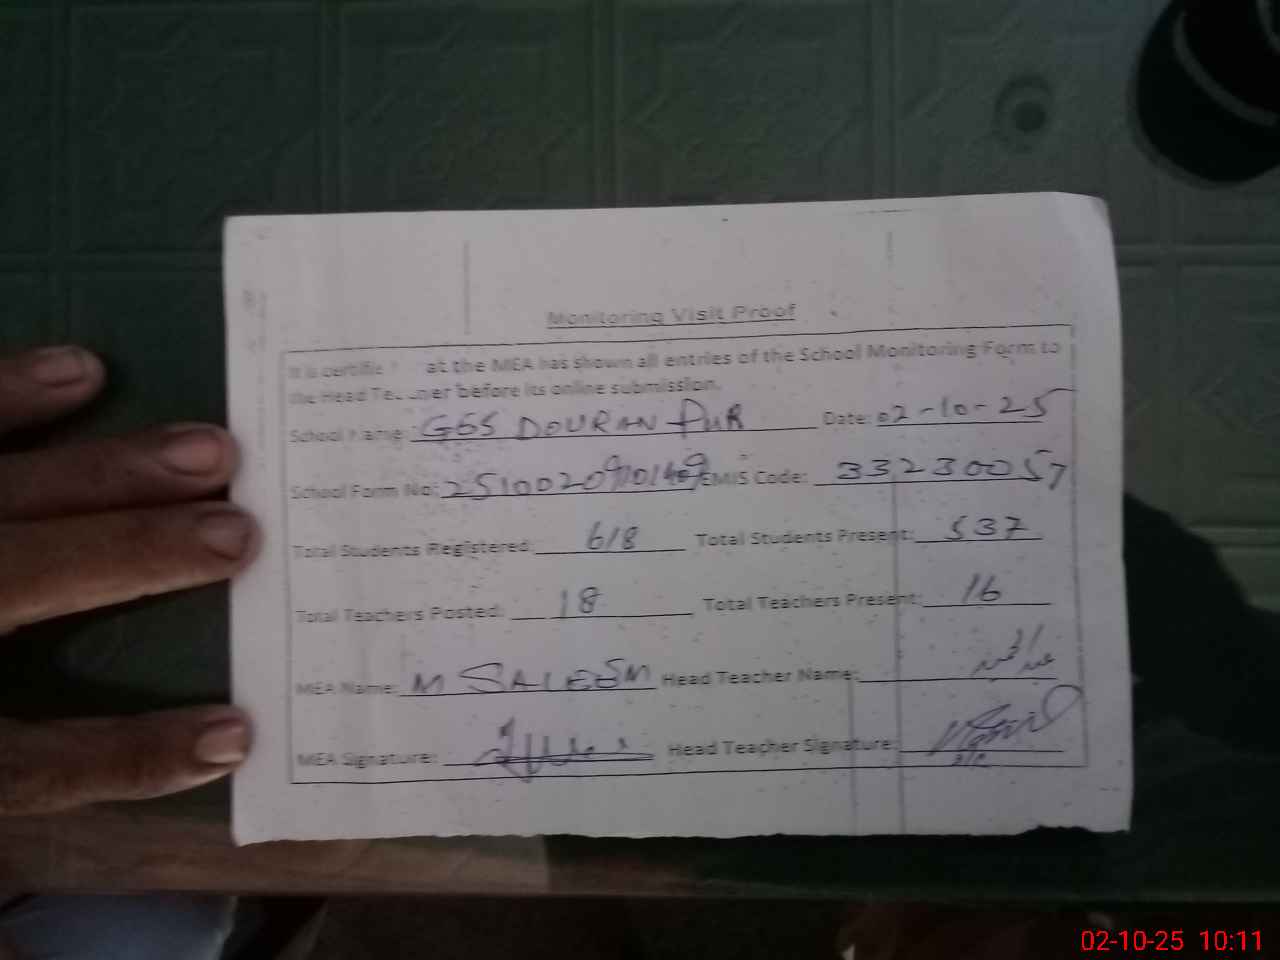 Monitoring Visit Proof
It is certifie at the MEA has shown all entries of the School Monitoring Form to
the Head Te ner before its online submission.
School Name: GSS DOURAN PUR Date: 02-10-25
School Form No: EMIS Code: 33230057
Total Students Registered: 618 Total Students Present: 537
Total Teachers Posted: 18 Total Teachers Present: 16
MEA Name: M SALEEM Head Teacher Name:
MEA Signature: Head Teacher Signature:
02-10-25 10:11